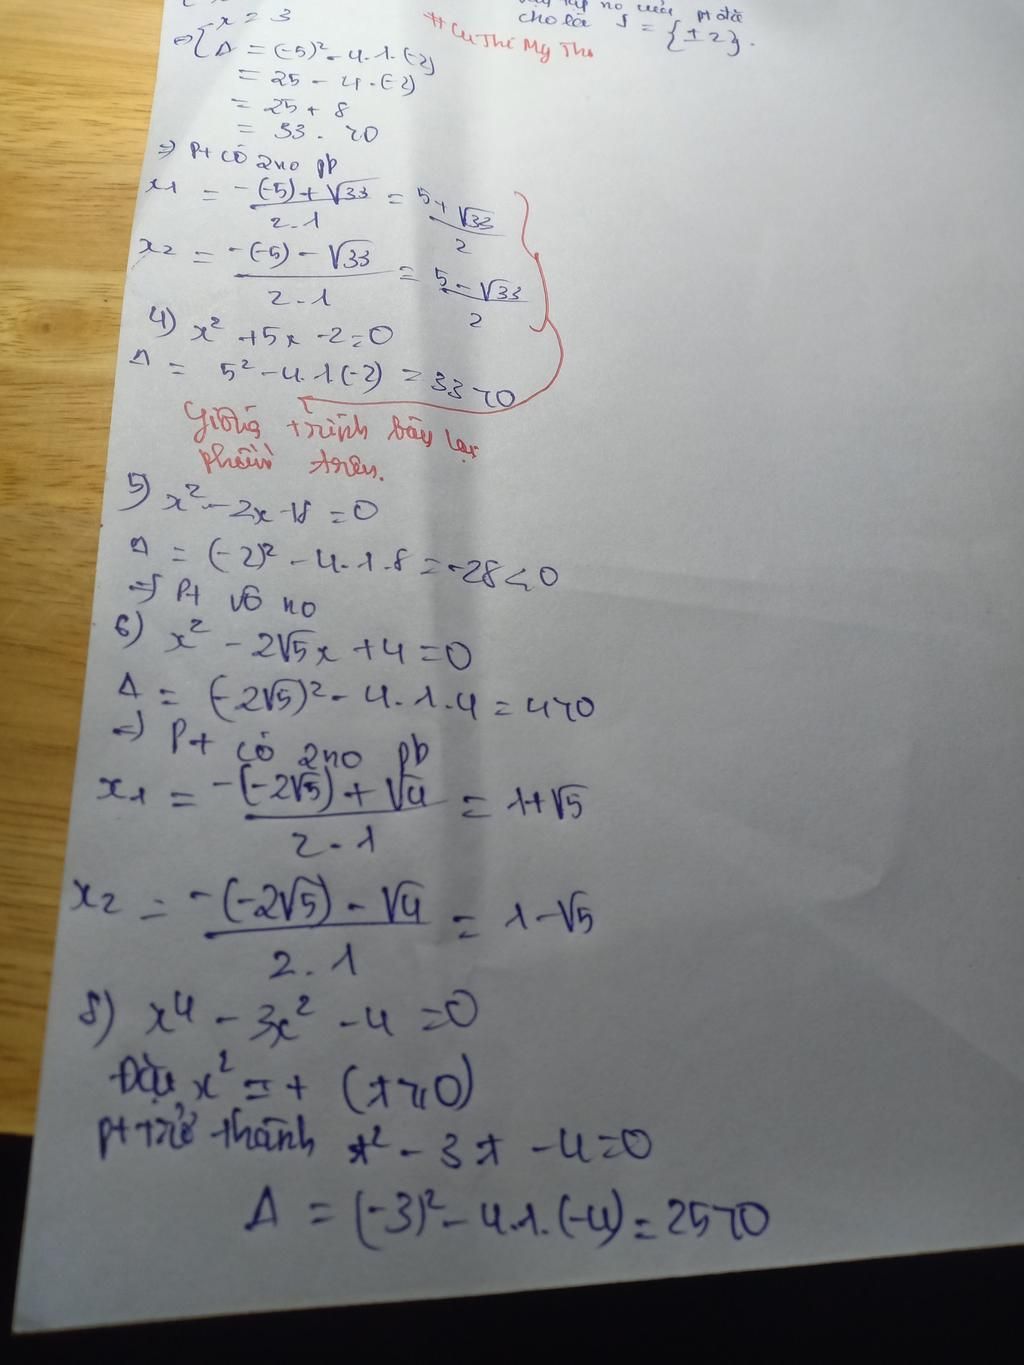 x = 3
cho là S = {±2}.
# Cu Thi My Tho
⇒ { Δ = (-5)² - 4.1.(-2)
= 25 - 4.(-2)
= 25 + 8
= 33 . >0
⇒ Pt có 2 no pb
x1 = -(-5)+√33 / 2.1 = 5+√33 / 2
x2 = -(-5)-√33 / 2.1 = 5-√33 / 2
4) x² +5x -2=0
Δ = 5² -4.1(-2) = 33 >0
Giống trình bày lại
phần trên.
5) x² - 2x +8 = 0
Δ = (-2)² - 4.1.8 = -28 < 0
⇒ Pt vô no
6) x² - 2√5x + 4 = 0
Δ = (-2√5)² - 4.1.4 = 4 >0
⇒ Pt có 2 no pb
x1 = -(-2√5)+√4 / 2.1 = 1+√5
x2 = -(-2√5)-√4 / 2.1 = 1-√5
8) x⁴ - 3x² - 4 = 0
Đặt x² = t (t ≥ 0)
pt trở thành t² - 3t - 4=0
Δ = (-3)² - 4.1.(-4) = 25 >0